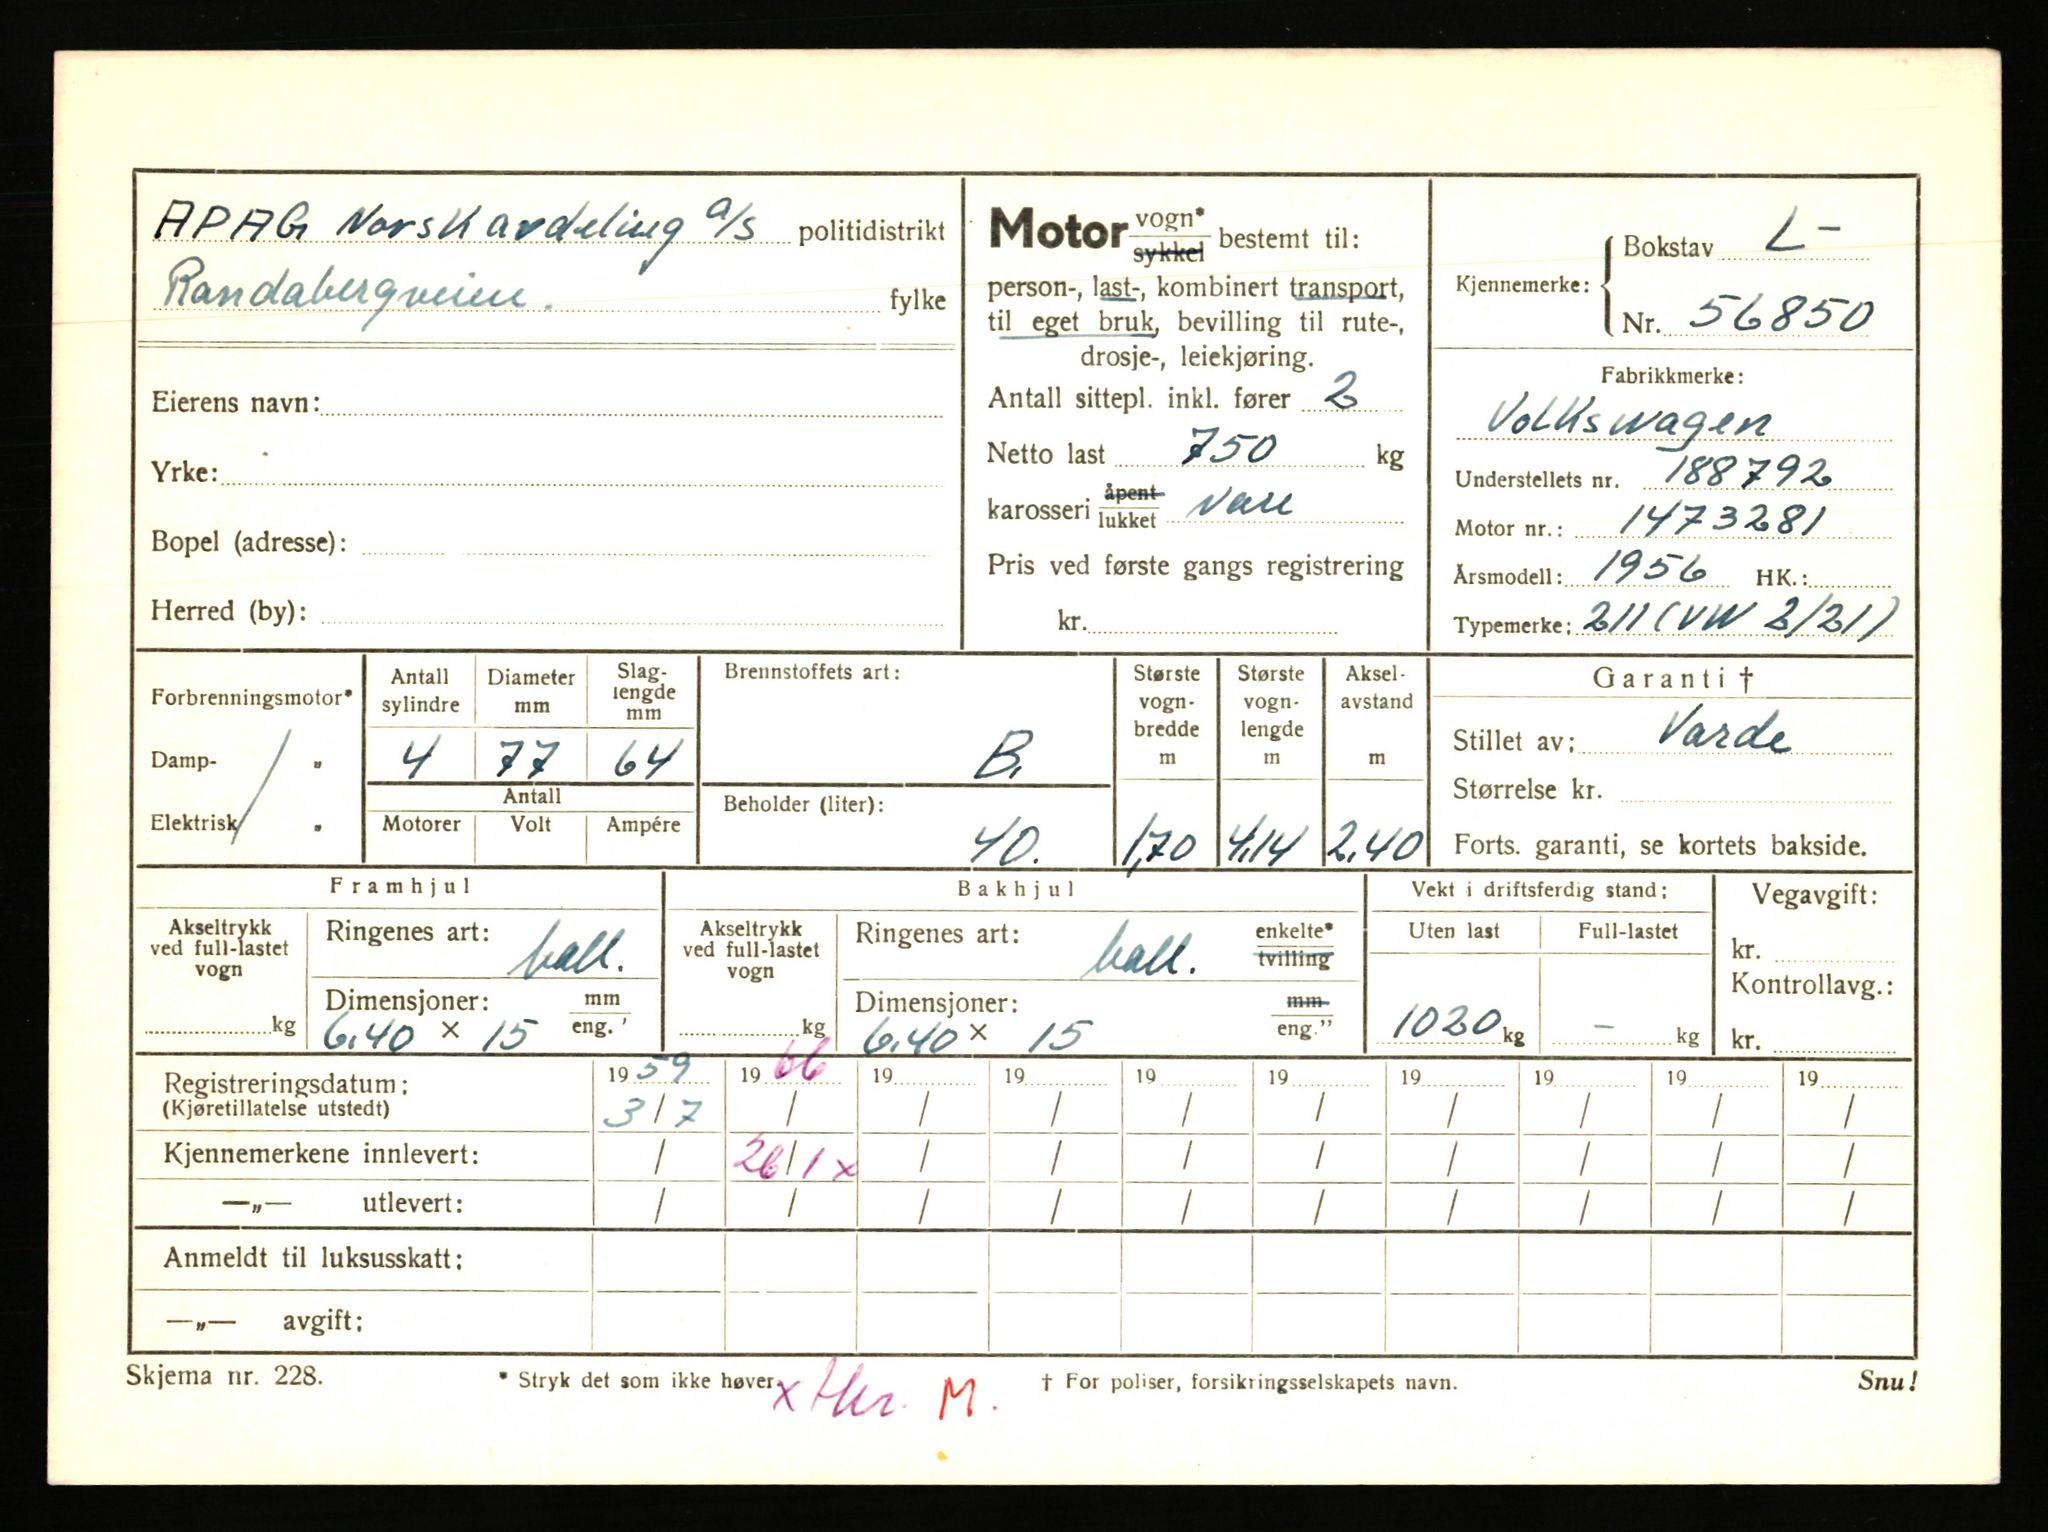 APAG Norsk avdeling a/s politidistrikt
Randabergveien. fylke
Eierens navn:
Yrke:
Bopel (adresse):
Herred (by):
Motor vogn* sykkel bestemt til:
person-, last-, kombinert transport,
til eget bruk, bevilling til rute-,
drosje-, leiekjøring.
Antall sittepl. inkl. fører 2
Netto last 750 kg
karosseri åpent lukket Vare
Pris ved første gangs registrering
kr.
Kjennemerke: Bokstav L-
Nr. 56850
Fabrikkmerke:
Volkswagen
Understellets nr. 188792
Motor nr.: 1473281
Årsmodell: 1956 HK.:
Typemerke: 211 (VW 2/21)
Forbrenningsmotor*
Damp- „
Elektrisk „
Antall sylindre
Diameter mm
Slag-
lengde
mm
4 77 64
Antall
Motorer Volt Ampére
Brennstoffets art:
B.
Beholder (liter):
40.
Største
vogn-
bredde
m
1,70
Største
vogn-
lengde
m
4,14
Aksel-
avstand
m
2,40
Garanti †
Stillet av: Varde
Størrelse kr.
Forts. garanti, se kortets bakside.
Framhjul
Akseltrykk
ved full-lastet
vogn
kg
Ringenes art: ball.
Dimensjoner: mm eng.'
6.40 × 15
Bakhjul
Akseltrykk
ved full-lastet
vogn
kg
Ringenes art: ball. enkelte* tvilling
Dimensjoner: mm eng.”
6.40 × 15
Vekt i driftsferdig stand:
Uten last Full-lastet
1020 kg – kg
Vegavgift:
kr.
Kontrollavg.:
kr.
Registreringsdatum: 19 59 19 66 19 19 19 19 19 19 19 19
(Kjøretillatelse utstedt) 3/7 / / / / / / / / /
Kjennemerkene innlevert: / 26/1 x / / / / / / / /
—„— utlevert: / / / / / / / / / /
Anmeldt til luksusskatt:
—„— avgift:
Skjema nr. 228. * Stryk det som ikke høver. † For poliser, forsikringsselskapets navn. Snu!
x M.